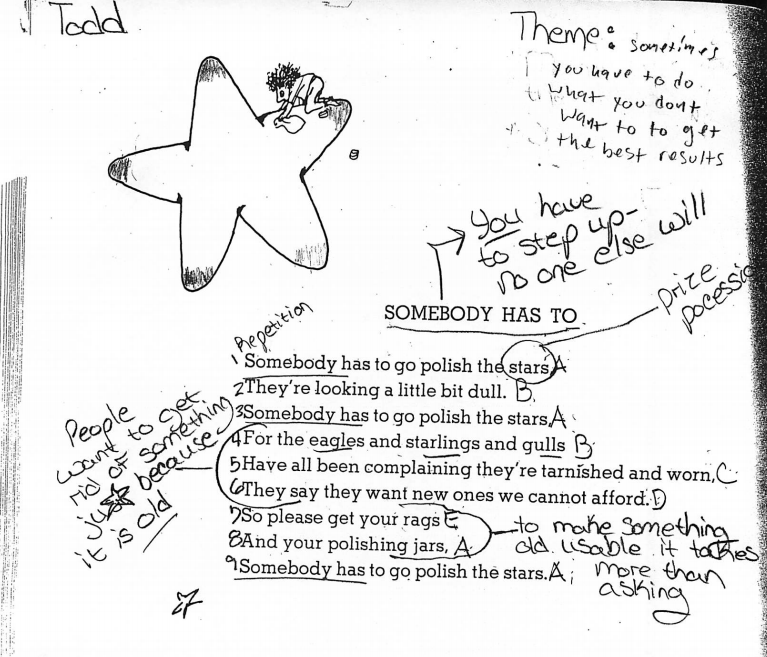 Todd
Theme: sometimes
you have to do
what you dont
want to to get
the best results
you have
to step up-
no one else will
SOMEBODY HAS TO
prize
pocessio
Repetition
1 Somebody has to go polish the stars, A
2 They're looking a little bit dull. B
3 Somebody has to go polish the stars, A
4 For the eagles and starlings and gulls B
5 Have all been complaining they're tarnished and worn, C
6 They say they want new ones we cannot afford. D
7 So please get your rags E
8 And your polishing jars, A
9 Somebody has to go polish the stars. A;
People
want to get
rid of something
just because
it is old
to make something
old usable it takes
more than
asking